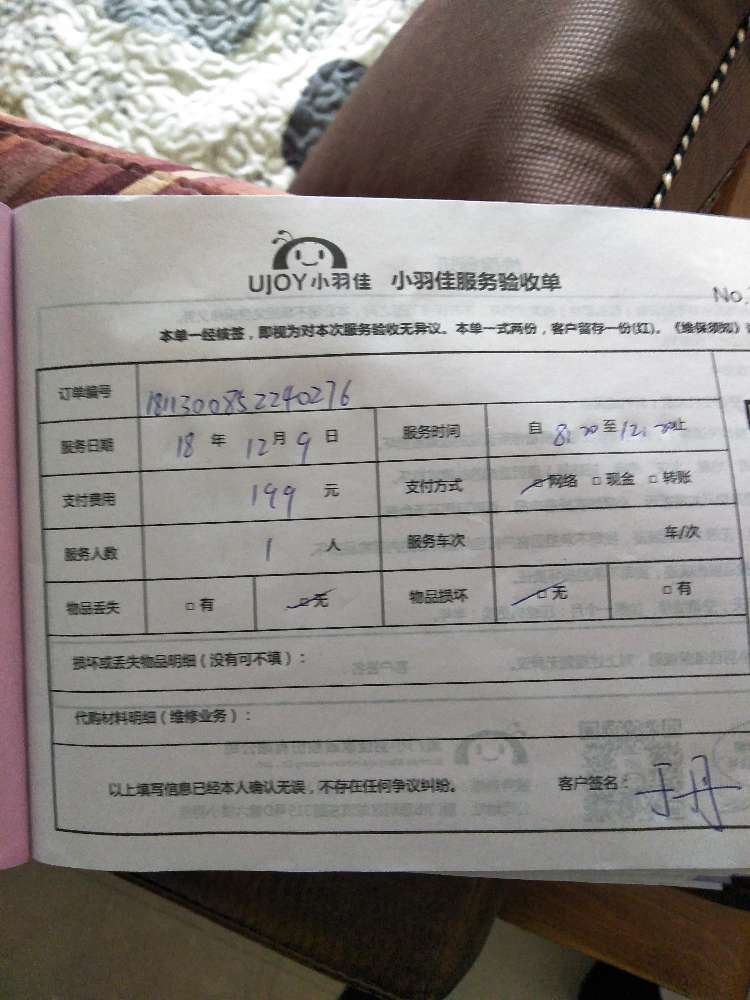 UJOY小羽佳 小羽佳服务验收单
No.
本单一经核签，即视为对本次服务验收无异议。本单一式两份，客户留存一份(红)。《维保须知》
订单编号 1811300852240276
服务日期 18 年 12 月 9 日 服务时间 自 8:20 至 12:20 止
支付费用 199 元 支付方式 □网络 □现金 □转账
服务人数 1 人 服务车次 车/次
物品丢失 □有 □无 物品损坏 □无 □有
损坏或丢失物品明细（没有可不填）：
代购材料明细（维修业务）：
以上填写信息已经本人确认无误，不存在任何争议纠纷。 客户签名：于丹